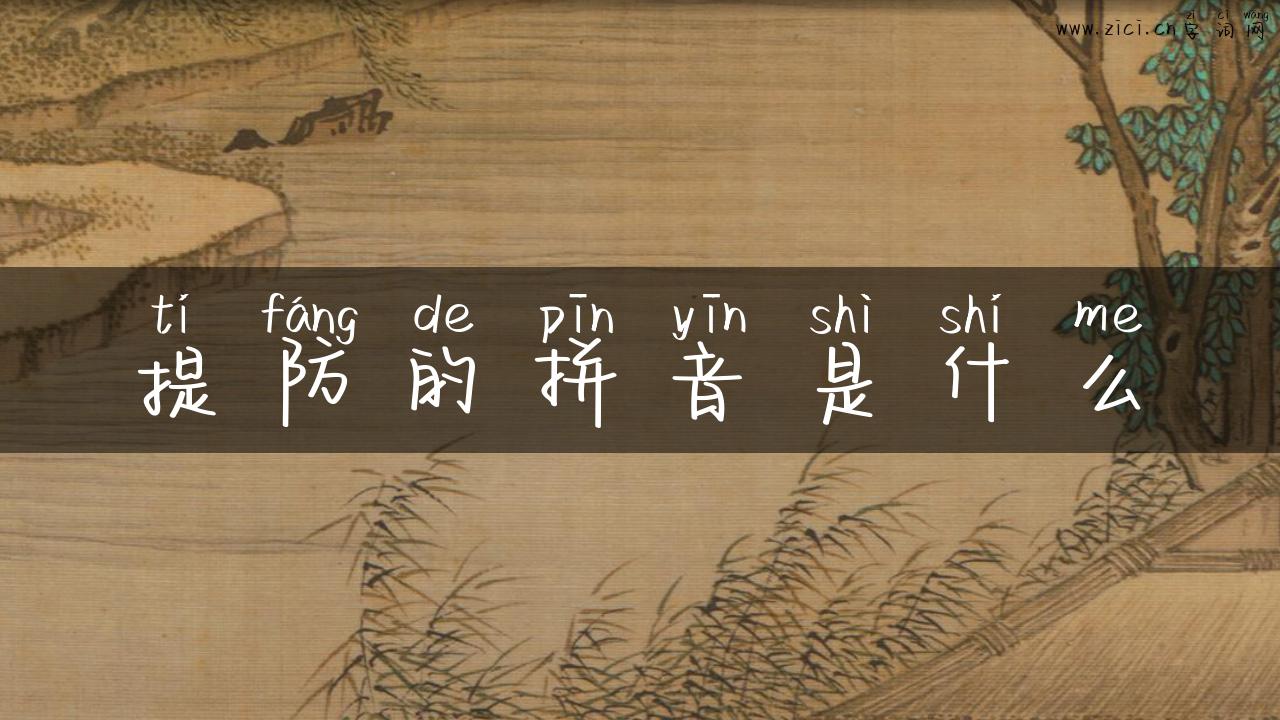 zì cí wǎng
www.zici.cn字词网
tí fáng de pīn yīn shì shí me
提防的拼音是什么